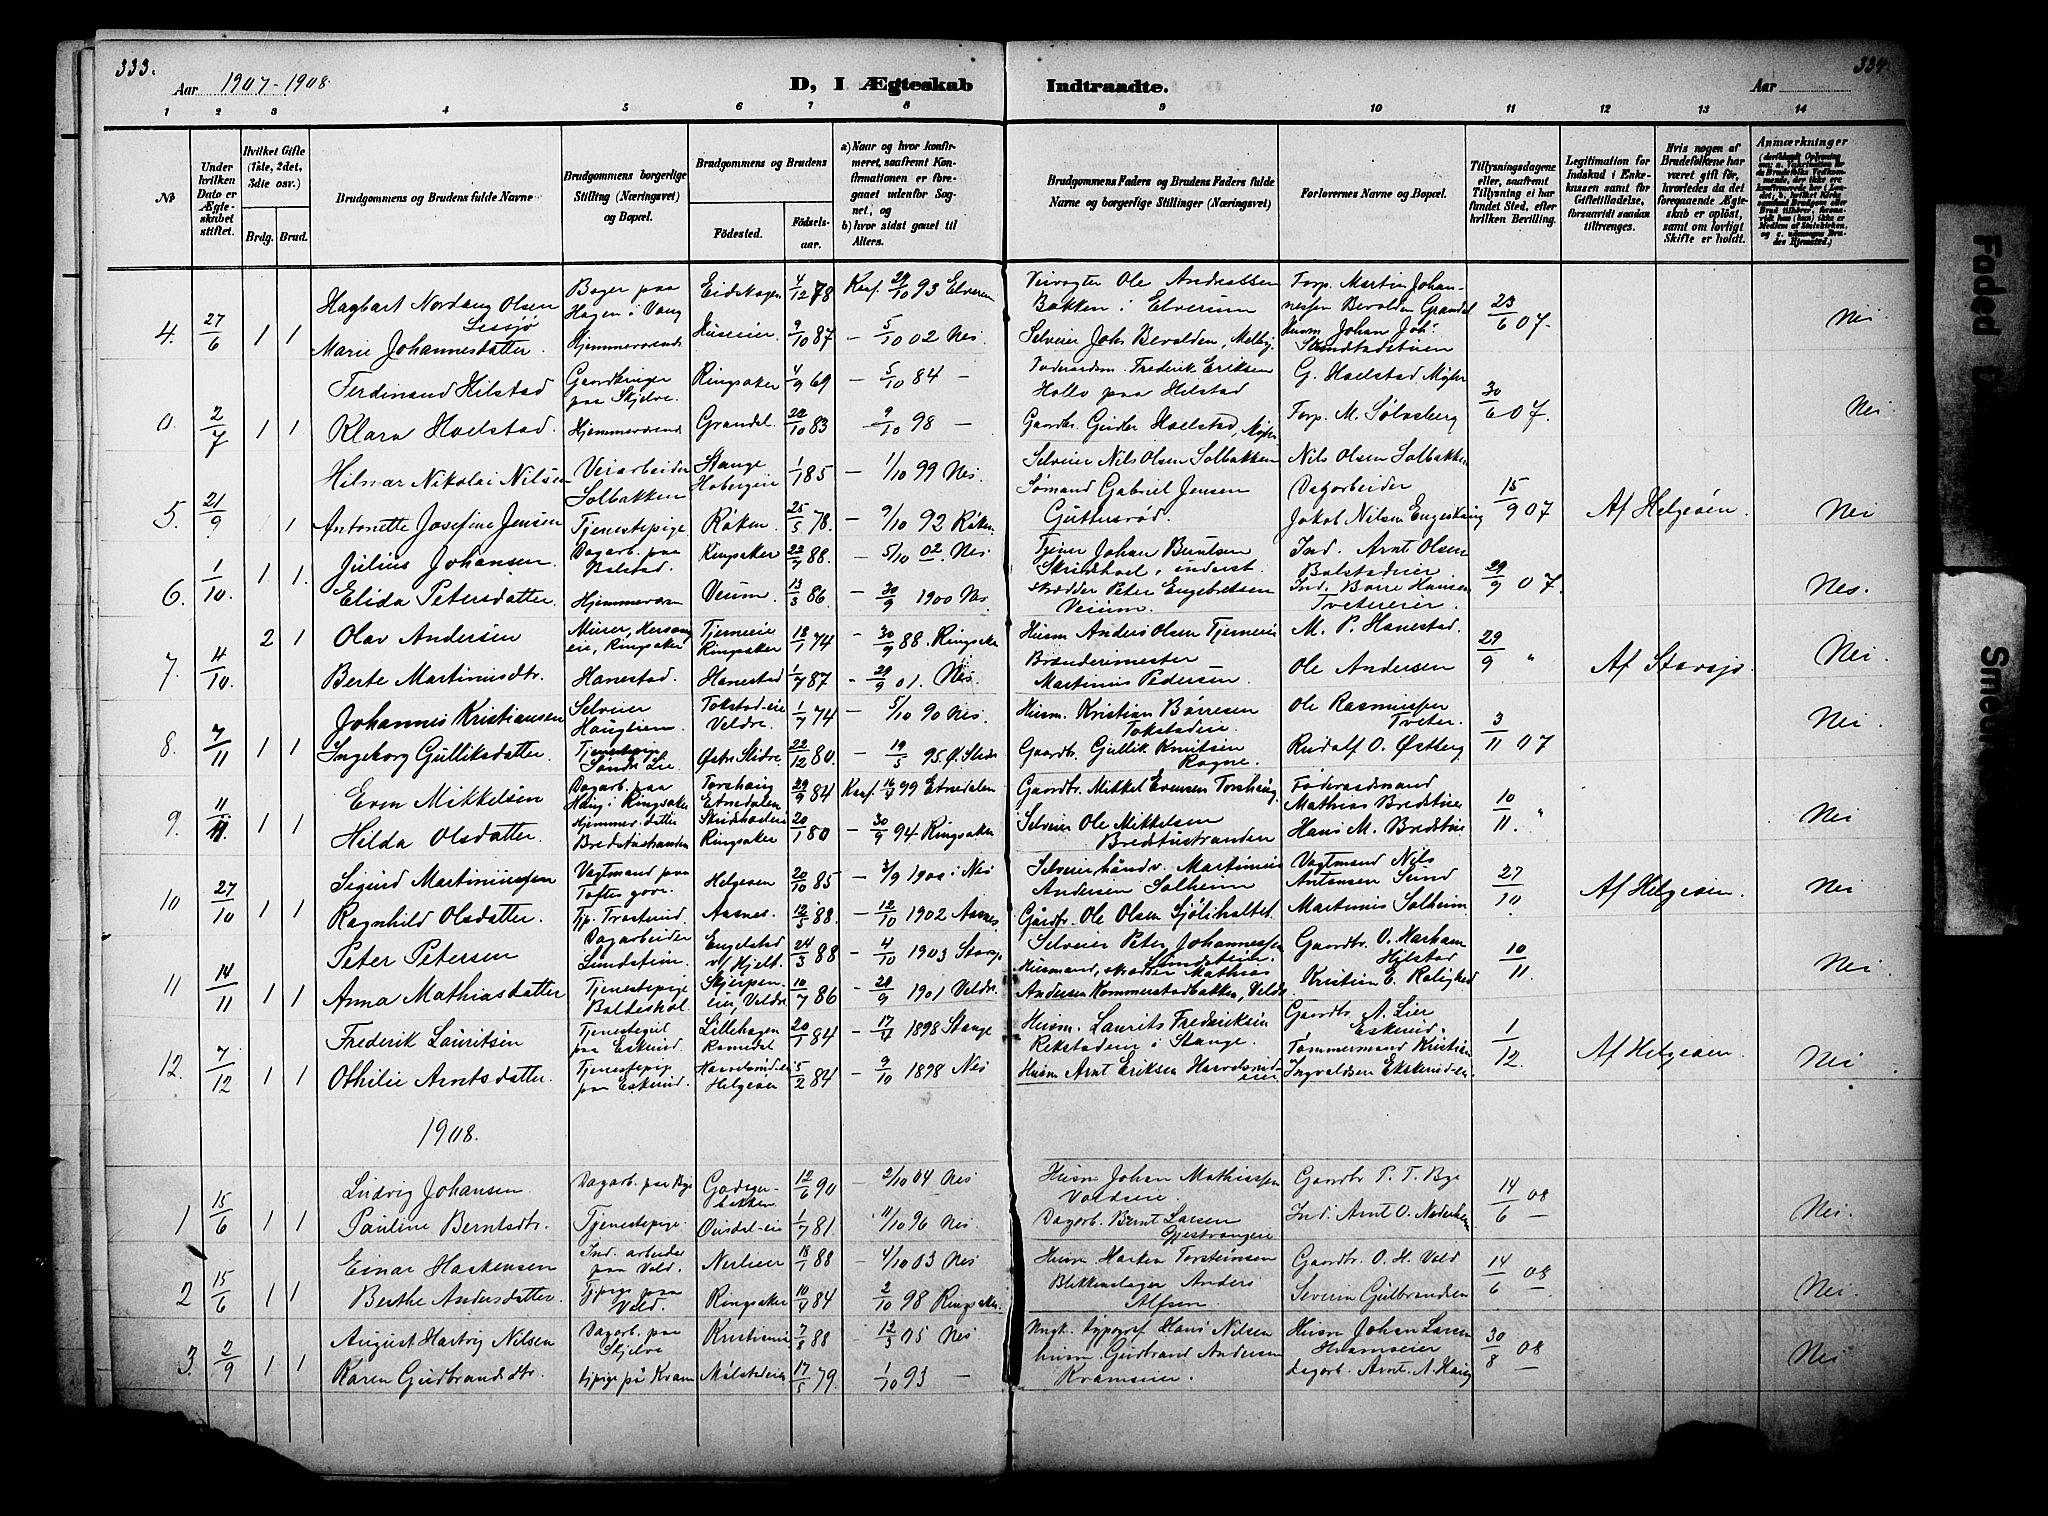 333.
Aar 1907-1908.
D, I Ægteskab
Indtraadte.
Aar
334
1 2 3 4 5 6 7 8 9 10 11 12 13 14
№
Under hvilken Dato er Ægteskabet stiftet.
Hvilket Gifte (1ste, 2det, 3die osv.)
Brdg. Brud.
Brudgommens og Brudens fulde Navne
Brudgommens borgerlige Stilling (Næringsvei) og Bopæl.
Brudgommens og Brudens
Fødested.
Fødselsaar.
a) Naar og hvor konfirmeret, saafremt Konfirmationen er foregaaet udenfor Sognet, og
b) hvor sidst gaaet til Alters.
Brudgommens Faders og Brudens Faders fulde Navne og borgerlige Stillinger (Næringsvei)
Forlovernes Navne og Bopæl.
Tillysningsdagene eller, saafremt Tillysning ei har fundet Sted, efter hvilken Bevilling.
Legitimation for Indskud i Enkekassen samt for Giftetilladelse, forsaavidt saadan tiltrænges.
Hvis nogen af Brudefolkene har været gift før, hvorledes da det foregaaende Ægteskab er opløst, samt om lovligt Skifte er holdt.
Anmærkninger
4. 27/6 1 1 Hagbart Nordang Olsen Bager paa Hagen i Vang Eidskogen 4/12 78 Konf. 29/10 93 Elverum Ole Andreassen Bakken i Elverum Torp. Martin Johannessen Berolden Grandel 23/6 07. Nei
Marie Johannesdatter. Hjemmeværende Huseeier 9/10 87 — 5/10 02 Nes. Selveier Johs Berolden, Melby. Husm Johan Joh:
0. 2/7 1 1 Ferdinand Hilstad Gaardbruger paa Skjelve. Ringsaker 4/9 69 — 5/10 84 — Frederik Eriksen Hollo paa Hilstad G. Hoelstad 30/6 07. Nei
Klara Hoelstad. Hjemmeværend Grandel. 22/10 83 — 9/10 98 — Gaardbr. Hoelstad, Torp. M. Sølvsberg
5. 21/9 1 Hilmar Nikolai Nilsen Veiarbeider Solbakken Stange 1/1 85 — 1/10 99 Nes. Selveier Nils Olsen Solbakken Nils Olsen Solbakken Dagarbeider 15/9 07 Af Helgeøen. Nei
Antonette Josefine Jensen Tjenestepige Røken. 25/5 78. — 9/10 92 Røken Sømand Gabriel Jensen Guttersrød. Jakob Nilsen Engeskaug
6. 1/10. 1 1. Julius Johansen Dagarb. paa Balstad. Ringsaker 22/7 88. — 5/10 02. Nes Tjener Johan Berntsen Ind. Arnt Olsen Balstadeier 29/9 07. Nes.
Elida Petersdatter. Hjemmevær. Veum. 13/3 86. — 30/9 1900 Nes Skrædder Peter Engebretsen Veium. Ind. Børre Hansen Tvetereier.
7. 4/10. 2 1 Olav Andersen Murer, Ringsaker Tjerneeie Ringsaker 18/1 74 — 30/9 88. Ringsaker Husm Anders Olsen Tjerneeie M. P. Hanestad. 29/9 " Af Stavsjø Nei.
Berte Martinusdtr. Hanestad. Hanestad 1/7 87 — 29/9 01. Nes. Brænderimester Martinus Pedersen — Ole Andersen
8. 7/11 1 1 Johannes Kristiansen Selveier Haugtien Tokstad-eie Veldre. 1/7 74 — 5/10 90 Nes. Husm. Kristian Børresen Tokstadeie. Ole Rasmussen Tveter. 3/11 07 Nei
Ingeborg Gulliksdatter. Tjenestepig Søndre Lie. Østre Slidre 22/12 80. — 19/5 95. Ø. Slidre Gaardbr. Gullik Knutsen Rogne. Rudolf O. Østberg
9. 11/11. 1 1 Even Mikkelsen Dagarb. paa Haug i Ringsaker Torshaug Etnedalen 29/9 84 Konf. 16/7 99 Etnedalen Gaardbr. Mikkel Evensen Torshaug, Føderaadsmand Mathias Bredstue 10/11. " Nei
Hilda Olsdatter. Hjemmev. datter Bredstustranden Ringsaker 20/1 80 — 30/9 94 Ringsaker Selveier Ole Mikkelsen Bredstustranden Hans M. Bredstue
10 27/10 1 1 Sigurd Martiniussen Vagtmand paa Toftes gave. Helgeøen 20/10 85 — 3/9 1900 i Nes Selveier håndv. Martinius Andersen Solheim Vagtmand Nils Antonsen Sund 27/10. Af Helgeøen. Nei
Ragnhild Olsdatter. Aasnes. 12/5 88. — 12/10 1902 Aasnes Gårdbr. Ole Olsen Sjøliholtet. Martinus Solheim.
11 14/11 1 1 Peter Petersen Dagarbeider Sundsteien. Engelstad v/ Hjelt. 24/3 88 — 4/10 1903 Stavsjø Selveier Peter Johannessen Sundsteien. Gaardbr. O. Harham Hilstad 10/11. Nei
Anna Mathiasdatter Tjenestepige Baldeshol. Skjerpeneie, Veldre 10/7 86 — 28/9 1901 Veldre. Husmand, skrædder Mathias Andersen Kommerstadbakken, Veldre Kristian E. Roligheid
12. 7/12 1 1 Frederik Lauritsen Tjenestegut paa Eskerud. Lillehagen Romedal 20/1 84 — 17/7 1898 Stange Husm. Laurits Frederiksen Rekstadeie i Stange. Gaardbr A. Lier Eskerud. 1/12 Af Helgeøen. Nei
Othilie Arntsdatter. Tjenestepig paa Eskerud. Helgeøen 5/2 84 — 9/10 1898 Nes Husm Arnt Eriksen Tømmermand Kristian Ingvaldsen
1908.
1 15/6 1 1 Ludvig Johansen Dagarb. paa Bye 12/6 90 — 2/10 04 Nes Husm Johan Mathiassen Valdseie. Gaardbr P. T. Bye 14/6 08 — Nei.
Pauline Berntsdtr. Tjenestepige. 1/7 81. 11/10 96 Nes. Dagarb. Bernt Larsen Gjestvangeie Ind. Arnt O. Nederheim
2 15/6 1 1 Einar Haakensen Ind. arbeider paa Vold. Nerlieeie 18/1 88 — 4/10 03 Nes Husm Haaken Torsteinsen Gaardbr. O. H. Vold 14/6 08 — Nei.
Berthe Andersdatter. Tjpige paa Vold. Ringsaker 10/4 84 — 2/10 98 Ringsaker Blikkenslager Anders Alfsen. Severin Gulbrandsen
3. 2/9 1 1 August Hartvig Nilsen Dagarb. paa Skjelve Kristiania 7/8 88 — 12/3 05 Nes Ungk. typograf Hans Nilsen Husm Johan Larsen Hramseier 30/8 08 — Nei
Karen Gudbrandsdtr. tjpige på Kram Målstadeie 17/5 79. — 1/10 93 — husm. Gudbrand Andersen Kramseier. dagarb. Arnt A. Haug
Faded D
Smud